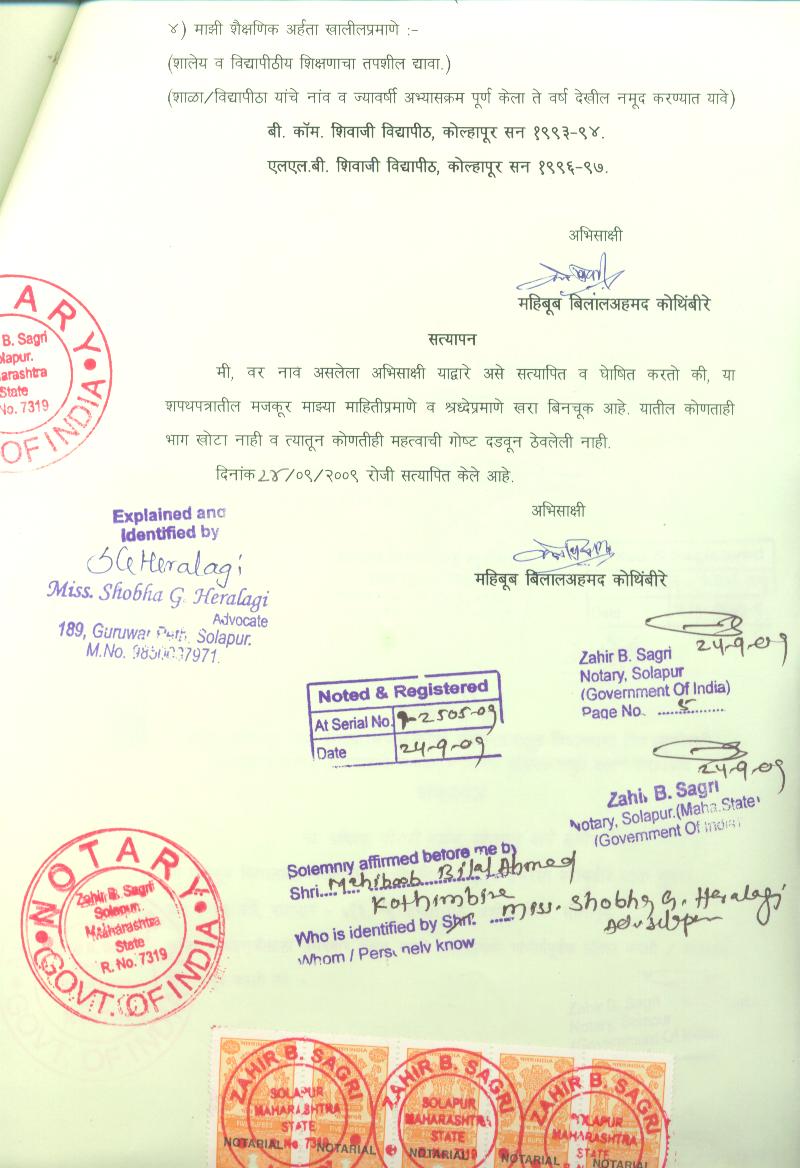 ४) माझी शैक्षणिक अर्हता खालीलप्रमाणे :-
(शालेय व विद्यापीठीय शिक्षणाचा तपशील द्यावा.)
(शाळा/विद्यापीठा यांचे नांव व ज्यावर्षी अभ्यासक्रम पूर्ण केला ते वर्ष देखील नमूद करण्यात यावे)
बी. कॉम. शिवाजी विद्यापीठ, कोल्हापूर सन १९९३-९४.
एलएल.बी. शिवाजी विद्यापीठ, कोल्हापूर सन १९९६-९७.
अभिसाक्षी
महिबूब बिलालअहमद कोथिंबीरे
सत्यापन
मी, वर नाव असलेला अभिसाक्षी याद्वारे असे सत्यापित व घोषित करतो की, या
शपथपत्रातील मजकूर माझ्या माहितीप्रमाणे व श्रध्देप्रमाणे खरा बिनचूक आहे. यातील कोणताही
भाग खोटा नाही व त्यातून कोणतीही महत्वाची गोष्ट दडवून ठेवलेली नाही.
दिनांक २४/०९/२००९ रोजी सत्यापित केले आहे.
अभिसाक्षी
महिबूब बिलालअहमद कोथिंबीरे
TARY
B. Sagri
olapur.
arashtra
State
No. 7319
OF INDIA
Explained and
Identified by
SGHeralagi
Miss. Shobha G. Heralagi
Advocate
189, Guruwar Peth, Solapur.
M.No.
24-9-09
Zahir B. Sagri
Notary, Solapur
(Government Of India)
Page No. 5
Noted & Registered
At Serial No. 2505-09
Date 24-9-09
24-9-09
Zahir B. Sagri
Notary, Solapur.(Maha.State)
(Government Of India)
NOTARY
Zahir B. Sagri
Solapur.
Maharashtra
State
R. No. 7319
GOVT. OF INDIA
Solemnly affirmed before me by
Shri. Mehiboob Bilal Ahmed
Kothimbire
Who is identified by Shri. Miss. Shobha G. Heralagi
Adv. Solapur
Whom / Personely know
ZAHIR B. SAGRI
SOLAPUR
MAHARASHTRA
STATE
NOTARIAL
NOTARIAL
ZAHIR B. SAGRI
SOLAPUR
MAHARASHTRA
STATE
NOTARIAL
ZAHIR B. SAGRI
SOLAPUR
MAHARASHTRA
STATE
NOTARIAL
NOTARIAL